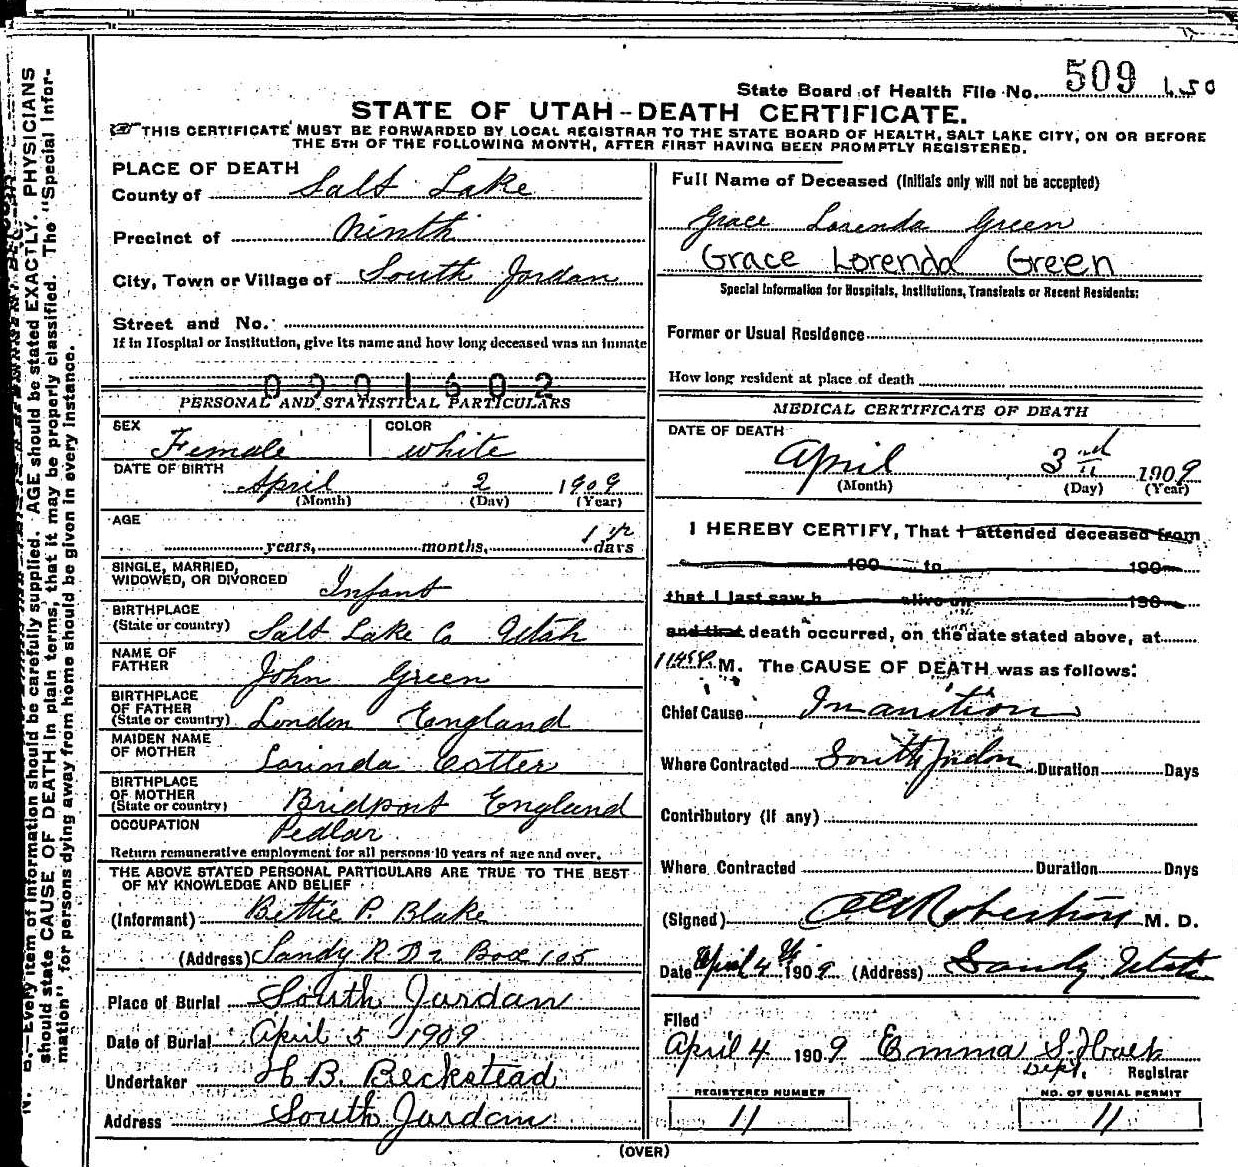 State Board of Health File No. 509 150
STATE OF UTAH-DEATH CERTIFICATE.
THIS CERTIFICATE MUST BE FORWARDED BY LOCAL REGISTRAR TO THE STATE BOARD OF HEALTH, SALT LAKE CITY, ON OR BEFORE
THE 5TH OF THE FOLLOWING MONTH, AFTER FIRST HAVING BEEN PROMPTLY REGISTERED.
PLACE OF DEATH
County of Salt Lake
Precinct of Ninth
City, Town or Village of South Jordan
Street and No.
If in Hospital or Institution, give its name and how long deceased was an inmate
0901602
PERSONAL AND STATISTICAL PARTICULARS
SEX Female COLOR white
DATE OF BIRTH
April 2 1909
(Month) (Day) (Year)
AGE
years, months, 1 1/2 days
SINGLE, MARRIED,
WIDOWED, OR DIVORCED Infant
BIRTHPLACE
(State or country) Salt Lake Co Utah
NAME OF
FATHER John Green
BIRTHPLACE
OF FATHER
(State or country) London England
MAIDEN NAME
OF MOTHER Lorinda Cotter
BIRTHPLACE
OF MOTHER
(State or country) Bridport England
OCCUPATION Pedlar
Return remunerative employment for all persons 10 years of age and over.
THE ABOVE STATED PERSONAL PARTICULARS ARE TRUE TO THE BEST
OF MY KNOWLEDGE AND BELIEF
(Informant) Bettie P. Blake
(Address) Sandy R D 2 Box 105
Place of Burial South Jordan
Date of Burial April 5 1909
Undertaker H B. Beckstead
Address South Jordan
Full Name of Deceased (Initials only will not be accepted)
Grace Lorenda Green
Grace Lorenda Green
Special Information for Hospitals, Institutions, Transients or Recent Residents:
Former or Usual Residence
How long resident at place of death
MEDICAL CERTIFICATE OF DEATH
DATE OF DEATH
April 3rd 1909
(Month) (Day) (Year)
I HEREBY CERTIFY, That I attended deceased from
190 to 190
that I last saw h alive on 190
and that death occurred, on the date stated above, at
1145P. M. The CAUSE OF DEATH was as follows:
Chief Cause Inanition
Where Contracted South Jordon Duration Days
Contributory (If any)
Where Contracted Duration Days
(Signed) Robertson M. D.
Date April 4 1909 (Address) Sandy Utah
Filed
April 4 1909 Emma S.
Dept. Registrar
REGISTERED NUMBER
11
NO. OF BURIAL PERMIT
11
(OVER)
N. B.—Every item of information should be carefully supplied. AGE should be stated EXACTLY. PHYSICIANS
should state CAUSE OF DEATH in plain terms, that it may be properly classified. The "Special Infor-
mation" for persons dying away from home should be given in every instance.